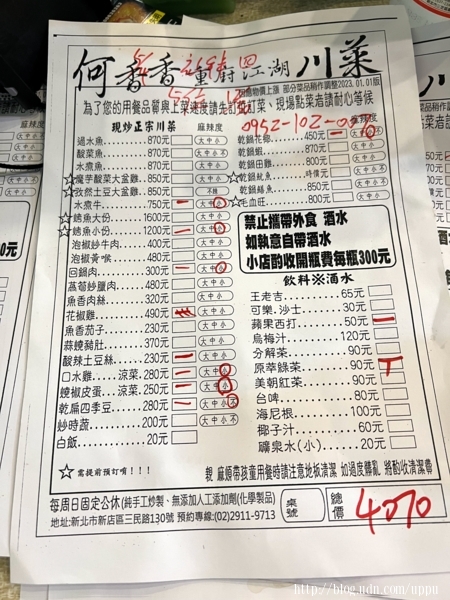 何香香 重廚 江湖川菜
因應物價上漲 部分菜品稍作調整2023. 01. 01版
為了您的用餐品質與上菜速度請先訂位訂菜、現場點菜者請耐心等候
0952-102-0
現炒正宗川菜 麻辣度
過水魚 870元 大中小
酸菜魚 850元 大中小
水煮魚 870元 大中小
☆魔芋酸菜大盆雞 850元 大中小
☆孜然土豆大盆雞 850元 不辣
水煮牛 750元 大中小
☆烤魚大份 1600元 大中小
☆烤魚小份 1200元 大中小
泡椒炒牛肉 400元 大中小
泡椒黃喉 480元 大中小
回鍋肉 300元 大中小
萵筍炒臘肉 480元
魚香肉絲 320元
花椒雞 490元 大中小
魚香茄子 230元
蒜燒豬肚 370元
酸辣土豆絲 230元 大中小
口水雞......涼菜 280元 大中小
燒椒皮蛋...涼菜 250元 大中小
乾扁四季豆 280元 大中小不
炒時蔬 200元 大中小不
白飯 20元
☆需提前預訂唷!!!
麻辣度
乾鍋花 450元
乾鍋蝦 870元 大中小
乾鍋田雞 800元 大中小
☆乾鍋魷魚 時價元 大中小
乾鍋鱔魚 850元 大中小
☆毛血旺 800元 大中小
禁止攜帶外食 酒水
如執意自帶酒水
小店酌收開瓶費每瓶300元
飲料※酒水
王老吉 65元
可樂.沙士 30元
蘋果西打 50元
烏梅汁 120元
分解茶 90元
原萃綠茶 90元
美朝紅茶 90元
台啤 80元
海尼根 100元
椰子汁 60元
礦泉水(小) 20元
親 麻煩帶孩童用餐時請注意地板清潔 如過度髒亂 將酌收清潔費
每週日固定公休(純手工炒製、無添加人工添加劑(化學製品)
地址:新北市新店區三民路130號 預約專線:(02)2911-9713
桌號
總價
4070
http://blog.udn.com/uppu